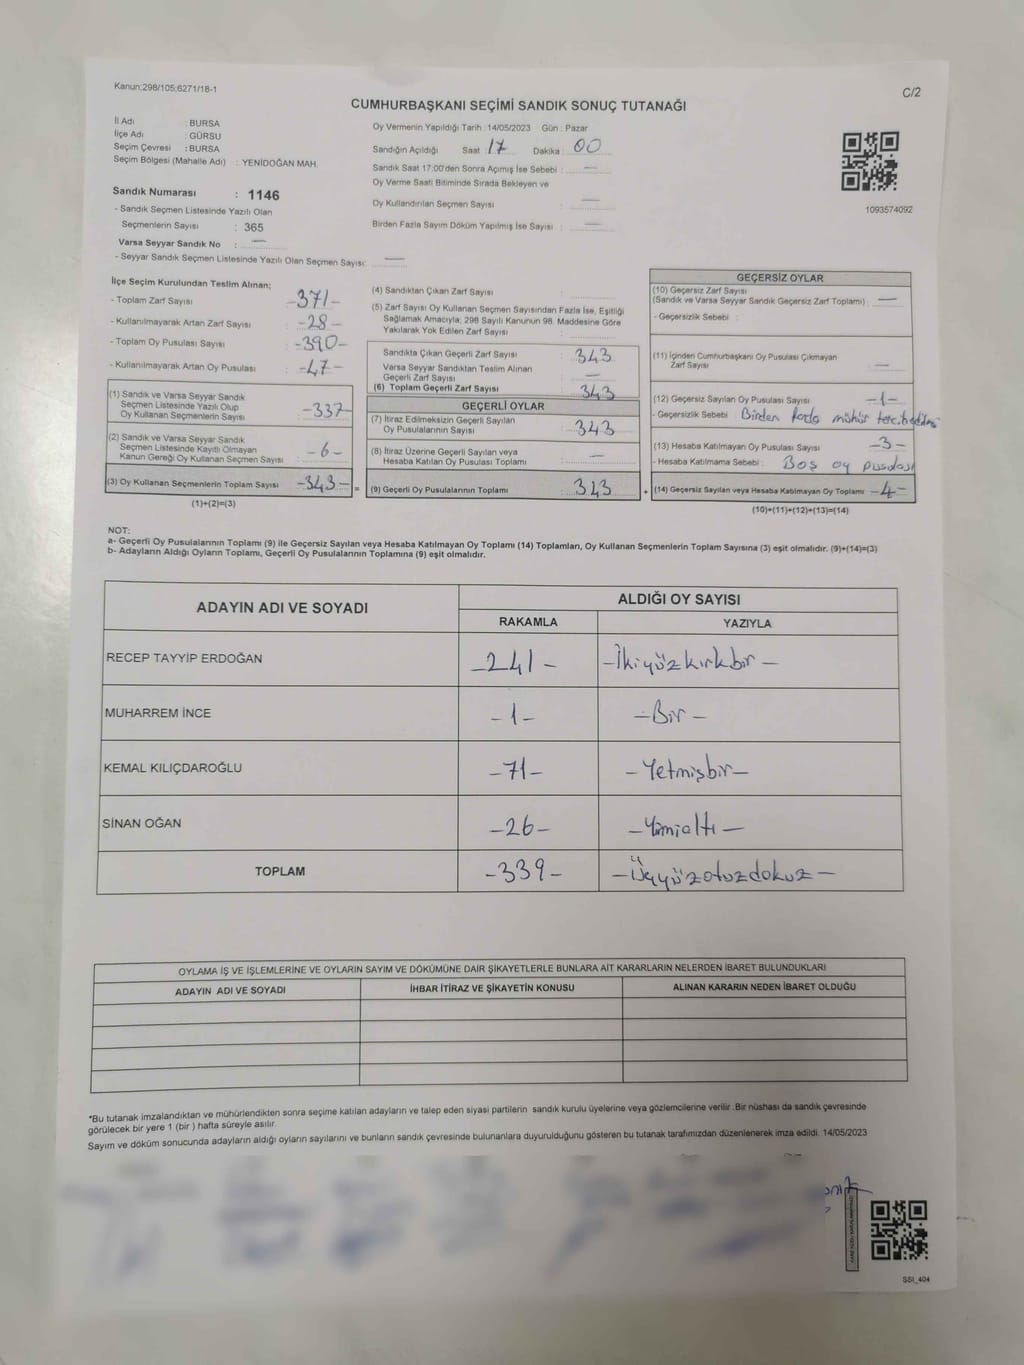 Kanun;298/105;6271/18-1
C/2
CUMHURBAŞKANI SEÇİMİ SANDIK SONUÇ TUTANAĞI
İl Adı : BURSA
İlçe Adı : GÜRSU
Seçim Çevresi : BURSA
Seçim Bölgesi (Mahalle Adı) : YENİDOĞAN MAH.
Sandık Numarası : 1146
- Sandık Seçmen Listesinde Yazılı Olan
Seçmenlerin Sayısı : 365
Varsa Seyyar Sandık No : —
- Seyyar Sandık Seçmen Listesinde Yazılı Olan Seçmen Sayısı: —
Oy Vermenin Yapıldığı Tarih : 14/05/2023 Gün : Pazar
Sandığın Açıldığı Saat : 17 Dakika : 00
Sandık Saat 17:00'den Sonra Açımış İse Sebebi : —
Oy Verme Saati Bitiminde Sırada Bekleyen ve
Oy Kullandırılan Seçmen Sayısı : —
Birden Fazla Sayım Döküm Yapılmış İse Sayısı : —
1093574092
İlçe Seçim Kurulundan Teslim Alınan;
- Toplam Zarf Sayısı : -371-
- Kullanılmayarak Artan Zarf Sayısı : -28-
- Toplam Oy Pusulası Sayısı : -390-
- Kullanılmayarak Artan Oy Pusulası : -47-
(1) Sandık ve Varsa Seyyar Sandık
Seçmen Listesinde Yazılı Olup
Oy Kullanan Seçmenlerin Sayısı : -337-
(2) Sandık ve Varsa Seyyar Sandık
Seçmen Listesinde Kayıtlı Olmayan
Kanun Gereği Oy Kullanan Seçmen Sayısı : -6-
(3) Oy Kullanan Seçmenlerin Toplam Sayısı : -343- =
(1)+(2)=(3)
(4) Sandıktan Çıkan Zarf Sayısı :
(5) Zarf Sayısı Oy Kullanan Seçmen Sayısından Fazla İse, Eşitliği
Sağlamak Amacıyla; 298 Sayılı Kanunun 98. Maddesine Göre
Yakılarak Yok Edilen Zarf Sayısı :
Sandıkta Çıkan Geçerli Zarf Sayısı : 343
Varsa Seyyar Sandıktan Teslim Alınan
Geçerli Zarf Sayısı : —
(6) Toplam Geçerli Zarf Sayısı : 343
GEÇERLİ OYLAR
(7) İtiraz Edilmeksizin Geçerli Sayılan
Oy Pusulalarının Sayısı : 343
(8) İtiraz Üzerine Geçerli Sayılan veya
Hesaba Katılan Oy Pusulası Toplamı : —
(9) Geçerli Oy Pusulalarının Toplamı : 343 +
GEÇERSİZ OYLAR
(10) Geçersiz Zarf Sayısı
(Sandık ve Varsa Seyyar Sandık Geçersiz Zarf Toplamı) : —
- Geçersizlik Sebebi :
(11) İçinden Cumhurbaşkanı Oy Pusulası Çıkmayan
Zarf Sayısı : —
(12) Geçersiz Sayılan Oy Pusulası Sayısı : -1-
- Geçersizlik Sebebi : Birden fazla mühür
(13) Hesaba Katılmayan Oy Pusulası Sayısı : -3-
- Hesaba Katılmama Sebebi : Boş oy pusulası
(14) Geçersiz Sayılan veya Hesaba Katılmayan Oy Toplamı : -4-
(10)+(11)+(12)+(13)=(14)
NOT:
a- Geçerli Oy Pusulalarının Toplamı (9) ile Geçersiz Sayılan veya Hesaba Katılmayan Oy Toplamı (14) Toplamları, Oy Kullanan Seçmenlerin Toplam Sayısına (3) eşit olmalıdır. (9)+(14)=(3)
b- Adayların Aldığı Oyların Toplamı, Geçerli Oy Pusulalarının Toplamına (9) eşit olmalıdır.
ADAYIN ADI VE SOYADI ALDIĞI OY SAYISI
RAKAMLA YAZIYLA
RECEP TAYYİP ERDOĞAN -241- -İkiyüzkırkbir-
MUHARREM İNCE -1- -Bir-
KEMAL KILIÇDAROĞLU -71- -Yetmişbir-
SİNAN OĞAN -26- -Yirmialtı-
TOPLAM -339- -Üçyüzotuzdokuz-
OYLAMA İŞ VE İŞLEMLERİNE VE OYLARIN SAYIM VE DÖKÜMÜNE DAİR ŞİKAYETLERLE BUNLARA AİT KARARLARIN NELERDEN İBARET BULUNDUKLARI
ADAYIN ADI VE SOYADI İHBAR İTİRAZ VE ŞİKAYETİN KONUSU ALINAN KARARIN NEDEN İBARET OLDUĞU
*Bu tutanak imzalandıktan ve mühürlendikten sonra seçime katılan adayların ve talep eden siyasi partilerin sandık kurulu üyelerine veya gözlemcilerine verilir .Bir nüshası da sandık çevresinde
görülecek bir yere 1 (bir ) hafta süreyle asılır.
Sayım ve döküm sonucunda adayların aldığı oyların sayılarını ve bunların sandık çevresinde bulunanlara duyurulduğunu gösteren bu tutanak tarafımızdan düzenlenerek imza edildi. 14/05/2023
SSI_404